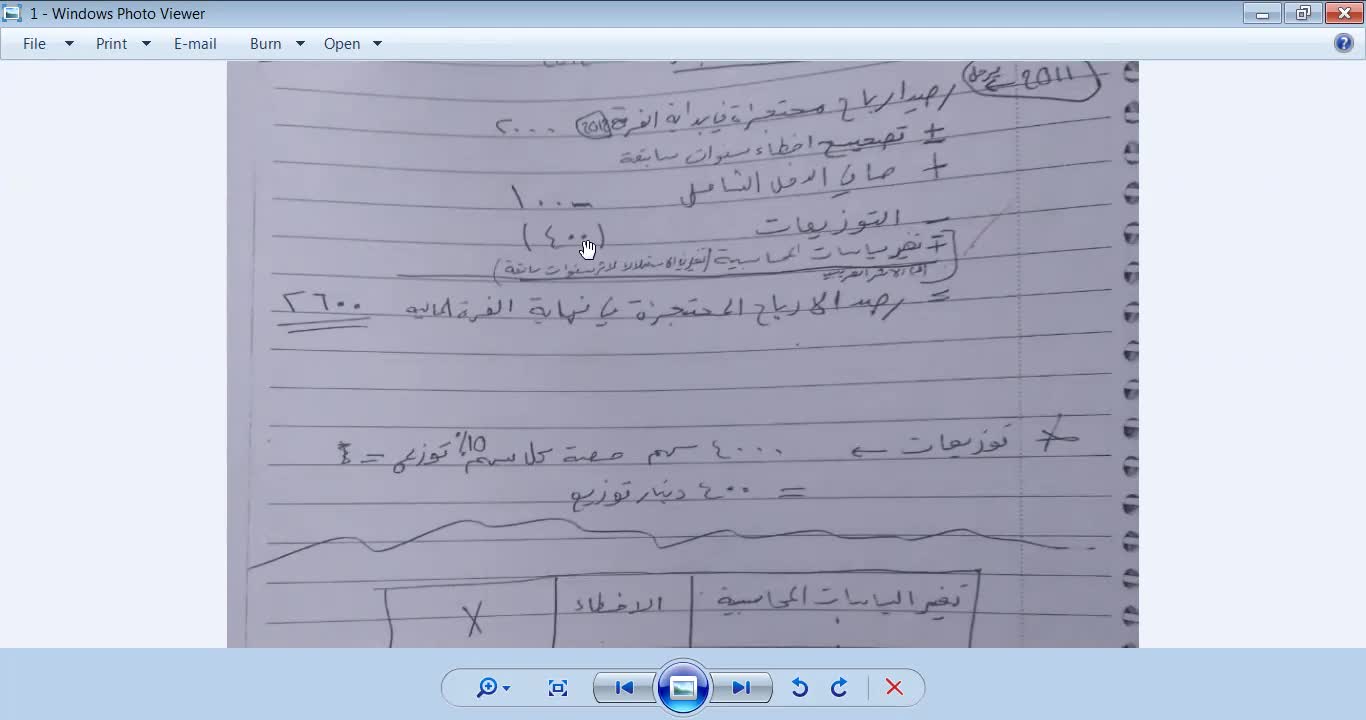 1 - Windows Photo Viewer
File Print E-mail Burn Open
2011
رصيد ارباح محتجزة في بداية الفترة 2010 ٢٠٠٠
± تصحيح اخطاء سنوات سابقة
+ صافي الدخل الشامل ١٠٠٠
- التوزيعات (٤٠٠)
∓ تغير سياسات المحاسبية سنوات سابقة
= رصيد الارباح المحتجزة في نهاية الفترة المالية ٢٦٠٠
توزيعات ← ٤٠٠٠ سهم حصة كل سهم 10% توزع =
= ٤٠٠ دينار توزيع
تغير السياسات المحاسبية الاخطاء X